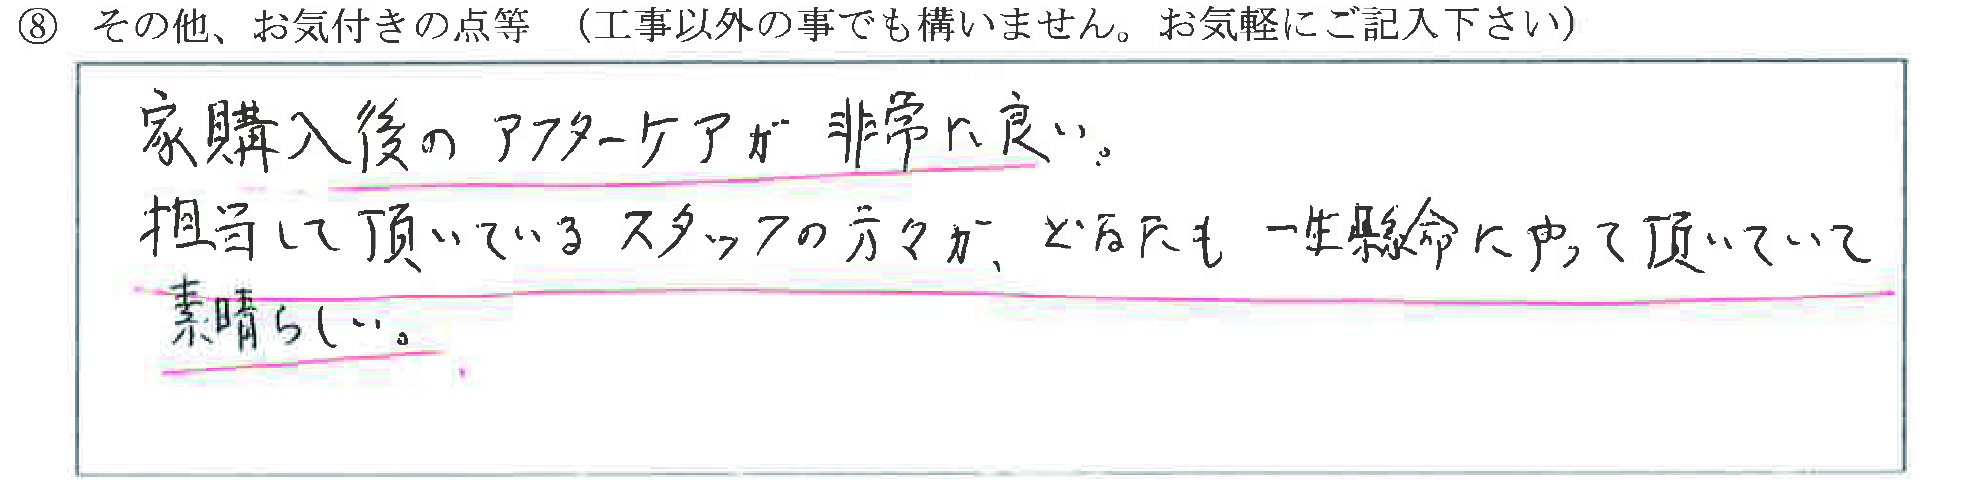 ⑧ その他、お気付きの点等 （工事以外の事でも構いません。お気軽にご記入下さい）
家購入後のアフターケアが非常に良い。
担当して頂いているスタッフの方々が、どなたも一生懸命にやって頂いていて
素晴らしい。